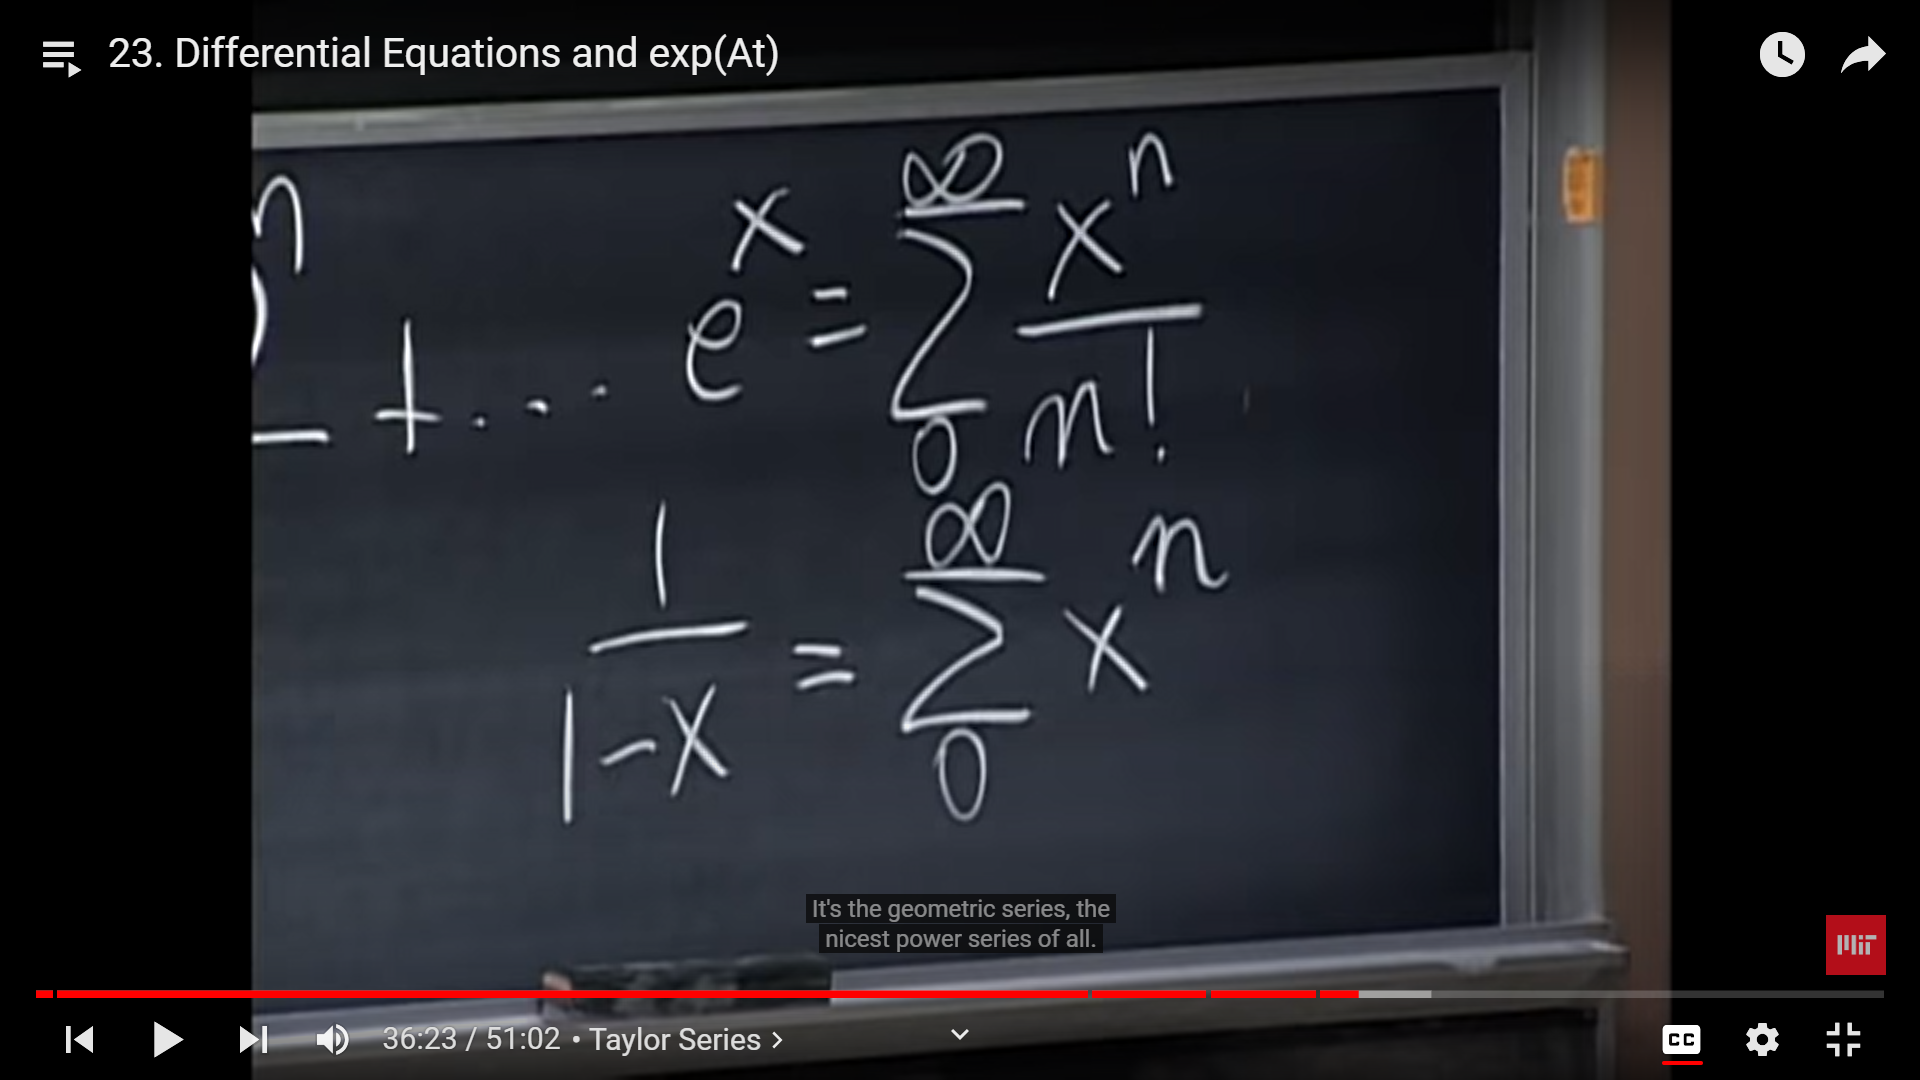 23. Differential Equations and exp(At)
n
+ ...
e^x = ∞ Σ 0 x^n / n!
1 / 1-x = ∞ Σ 0 x^n
It's the geometric series, the
nicest power series of all.
MIT
36:23 / 51:02 • Taylor Series >
CC